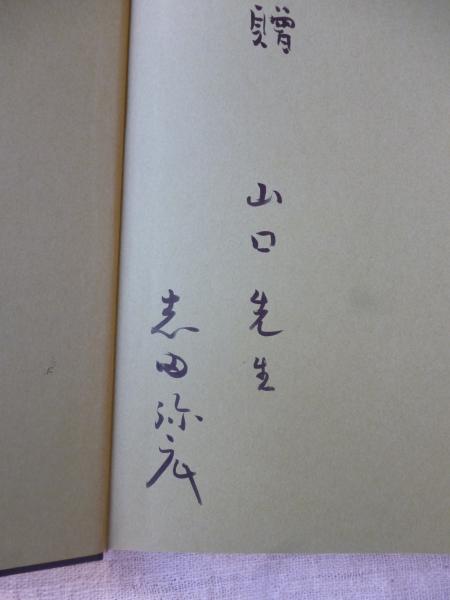 贈 山口先生
志田弥広